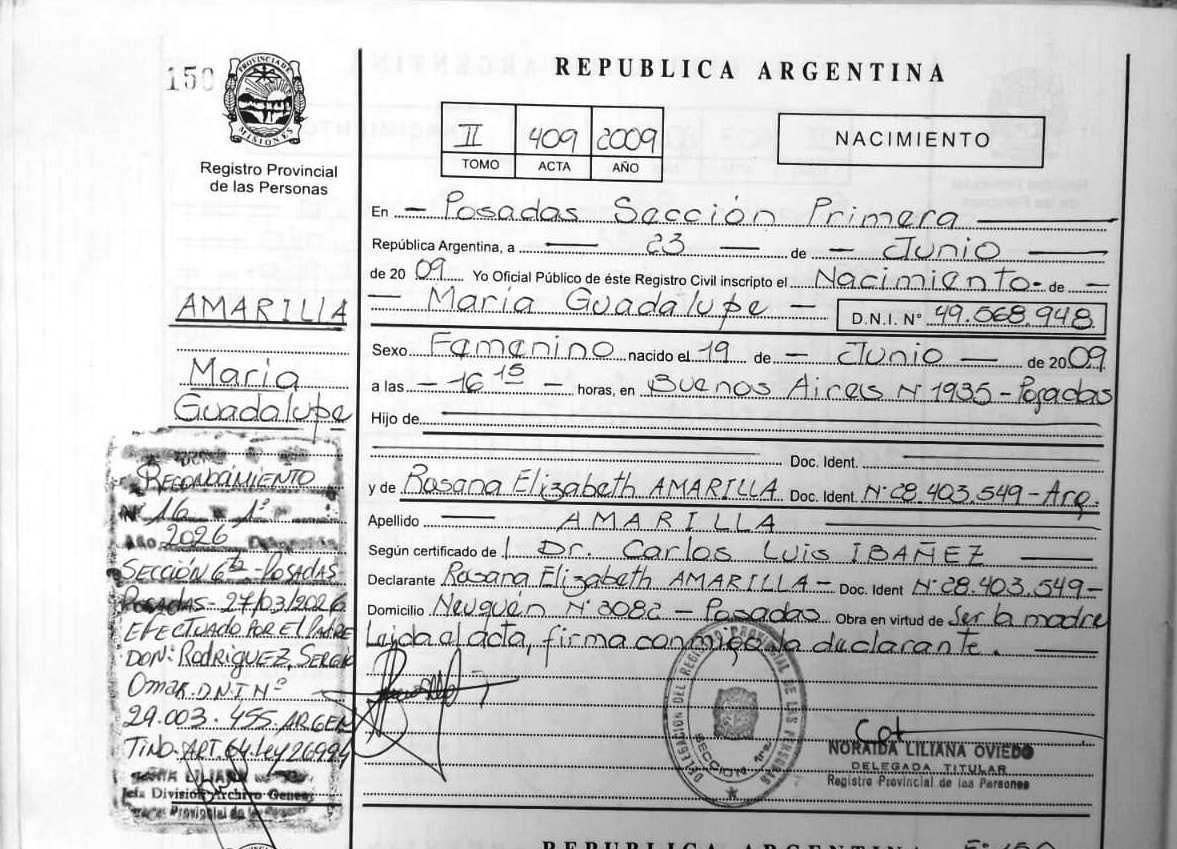 150
PROVINCIA DE MISIONES
Registro Provincial
de las Personas
REPUBLICA ARGENTINA
II 409 2009
TOMO ACTA AÑO
NACIMIENTO
En — Posadas Sección Primera —
República Argentina, a — 23 — de — Junio —
de 20 09 Yo Oficial Público de éste Registro Civil inscripto el Nacimiento - de —
— María Guadalupe — D.N.I. Nº 49.568.948
Sexo Femenino nacido el 19 de — Junio — de 20 09
a las — 16 15 — horas, en Buenos Aires Nº 1935 - Posadas
Hijo de —
Doc. Ident. —
y de Rosana Elizabeth AMARILLA Doc. Ident. Nº 28.403.549 - Arg.
Apellido — AMARILLA —
Según certificado de Dr. Carlos Luis IBAÑEZ —
Declarante Rosana Elizabeth AMARILLA - Doc. Ident Nº 28.403.549 -
Domicilio Neuquén Nº 3082 - Posadas. Obra en virtud de Ser la madre
Leída el acta, firma conmigo la declarante. —
AMARILLA
María
Guadalupe
RECONOCIMIENTO
Nº 16 1º
Año 2026 Delegación
SECCIÓN 6ta - POSADAS
Posadas - 27/03/2026
EFECTUADO POR El PADRE
DON: RodRIGUEZ, SERGIO
OmaR. D.N.I Nº
29.003.455. ARGEN
TINO. ART. 64. Ley 26994
LILIANA
Jefa División Archivo General
Provincial de las
DELEGACION DEL REGISTRO PROVINCIAL DE LAS PERSONAS
SECCION 1ra.
NORAIDA LILIANA OVIEDO
DELEGADA TITULAR
Registro Provincial de las Personas
REPUBLICA ARGENTINA Fº 150